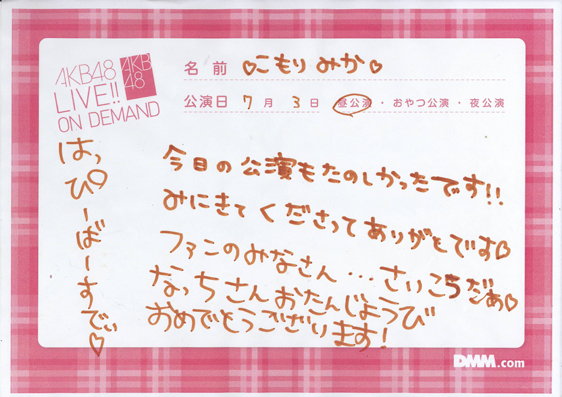 AKB48
LIVE!!
ON DEMAND
AKB
48
名前 ♡こもりみか♡
公演日 7月3日 昼公演・おやつ公演・夜公演
はっぴーばーすでぃ♡
今日の公演もたのしかったです!!
みにきてくださってありがとです♡
ファンのみなさん…さいこうだぁ♡
なっちさんおたんじょうび
おめでとうございます!
DMM.com